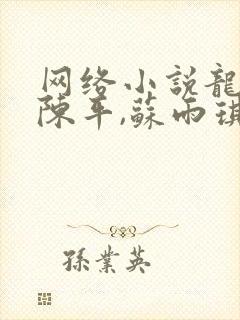 网络小説龍
陳平,蘇雨琪
孫業英